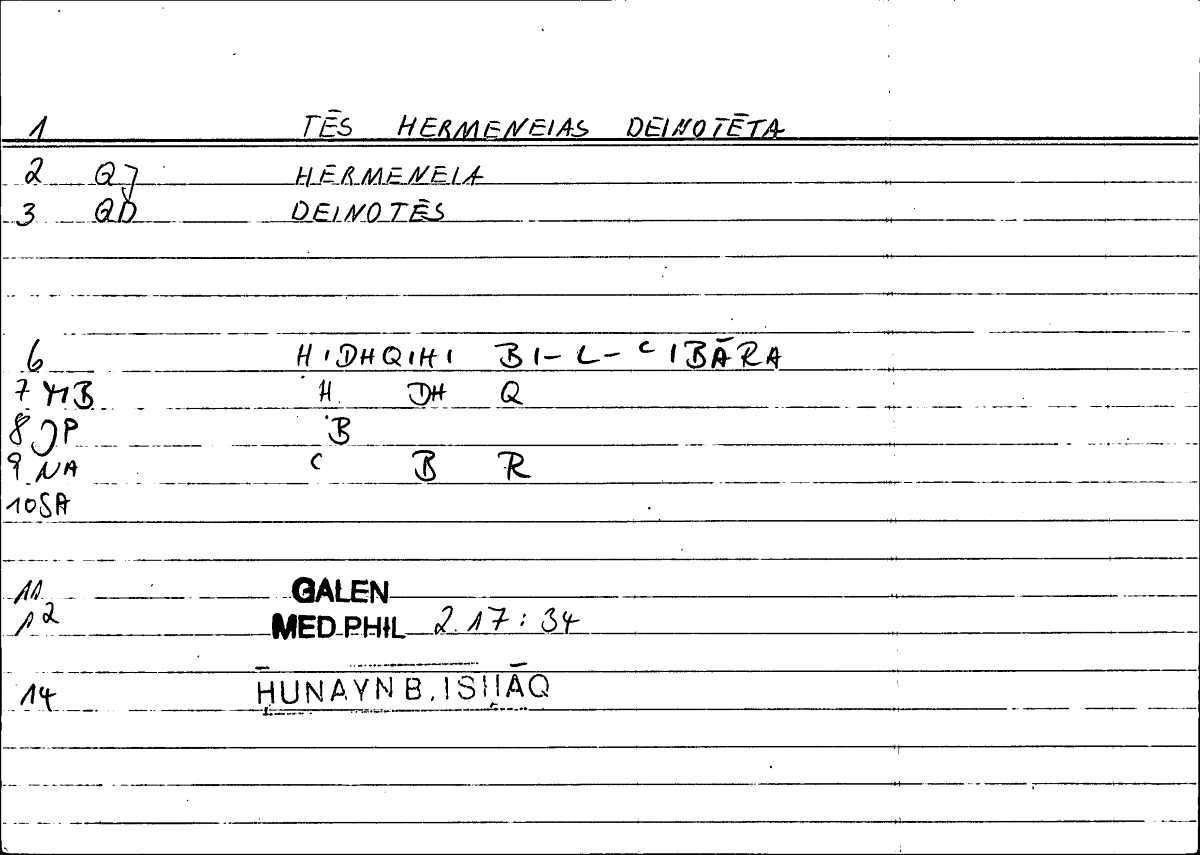 1 TĒS HERMENEIAS DEINOTĒTA
2 QJ HERMENEIA
3 QD DEINOTĒS
6 ḤIDHQIHI BI-L-ʿIBĀRA
7 MB Ḥ DH Q
8 JP B
9 NA ʿ B R
10 SA
11 GALEN
12 MED.PHIL 2.17:34
14 ḤUNAYN B. ISḤĀQ